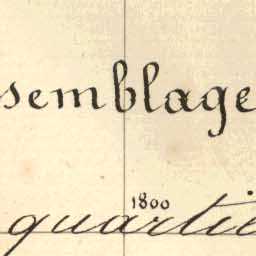 semblage
1800
quartie